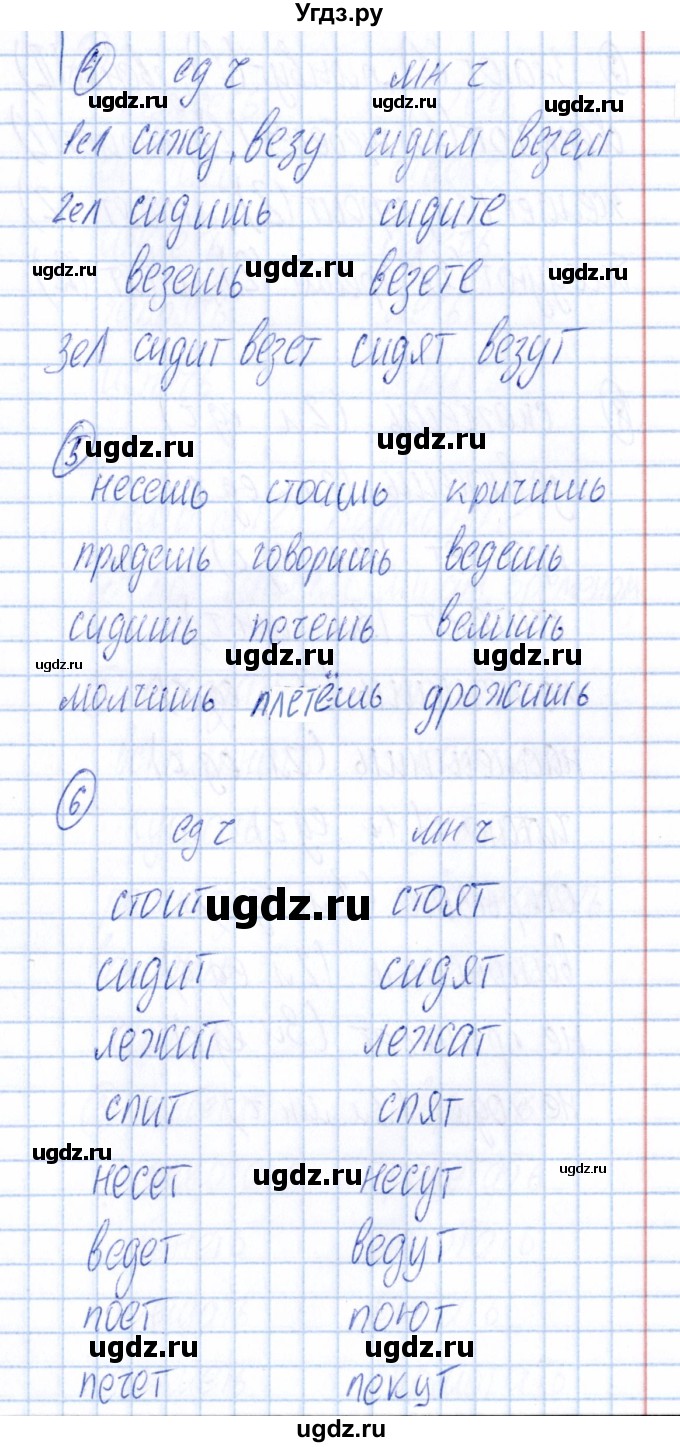 Угдз.ру
4 ед ч мн ч
ugdz.ru ugdz.ru ugdz.ru
1ел сижу, везу сидим везем
2ел сидишь сидите
ugdz.ru везешь ugdz.ru везете ugdz.ru
3ел сидит везет сидят везут
5 ugdz.ru ugdz.ru
несешь стоишь кричишь
прядешь говоришь ведешь
сидишь печешь велишь
ugdz.ru ugdz.ru ugdz.ru
молчишь плетёшь дрожишь
6
ед ч мн ч
стоит ugdz.ru стоят
сидит сидят
лежит лежат
спит спят
ugdz.ru ugdz.ru ugdz.ru
несет несут
ведет ведут
поет поют
ugdz.ru ugdz.ru
печет пекут
ugdz.ru